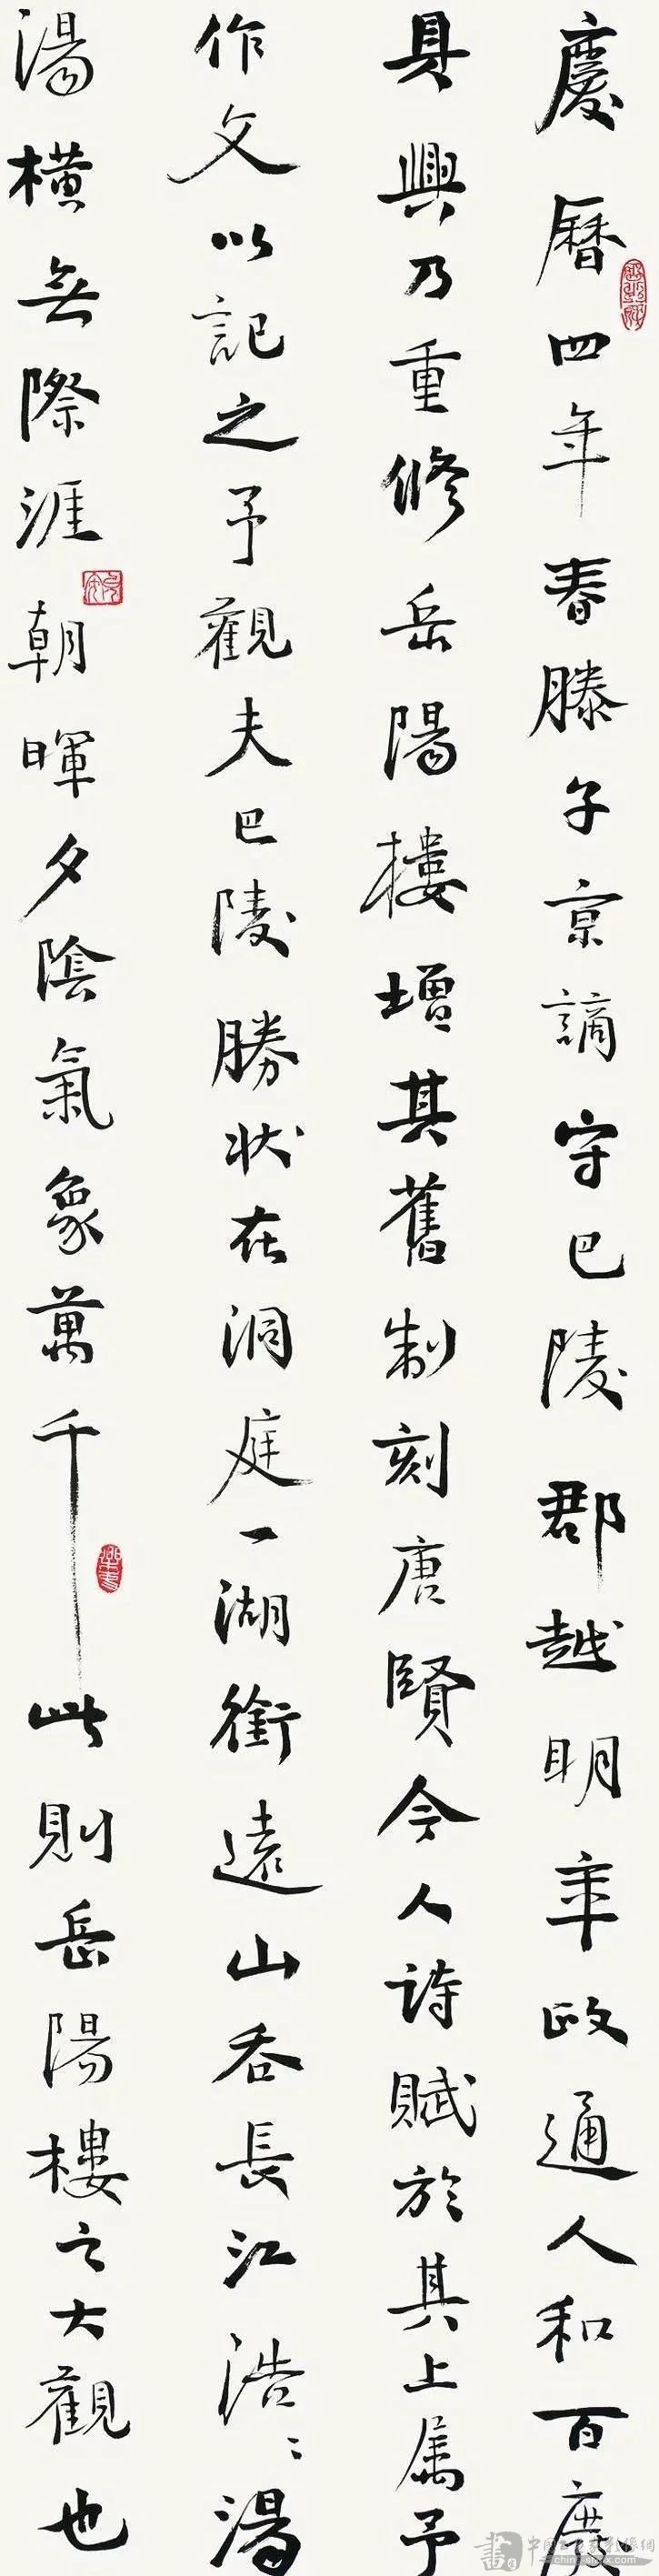 慶曆四年春滕子京謫守巴陵郡越明年政通人和百廢
具興乃重修岳陽樓增其舊制刻唐賢今人詩賦於其上属予
作文以記之予觀夫巴陵勝状在洞庭一湖銜遠山吞長江浩〻湯
湯橫無際涯朝暉夕陰氣象萬千此則岳陽樓之大觀也